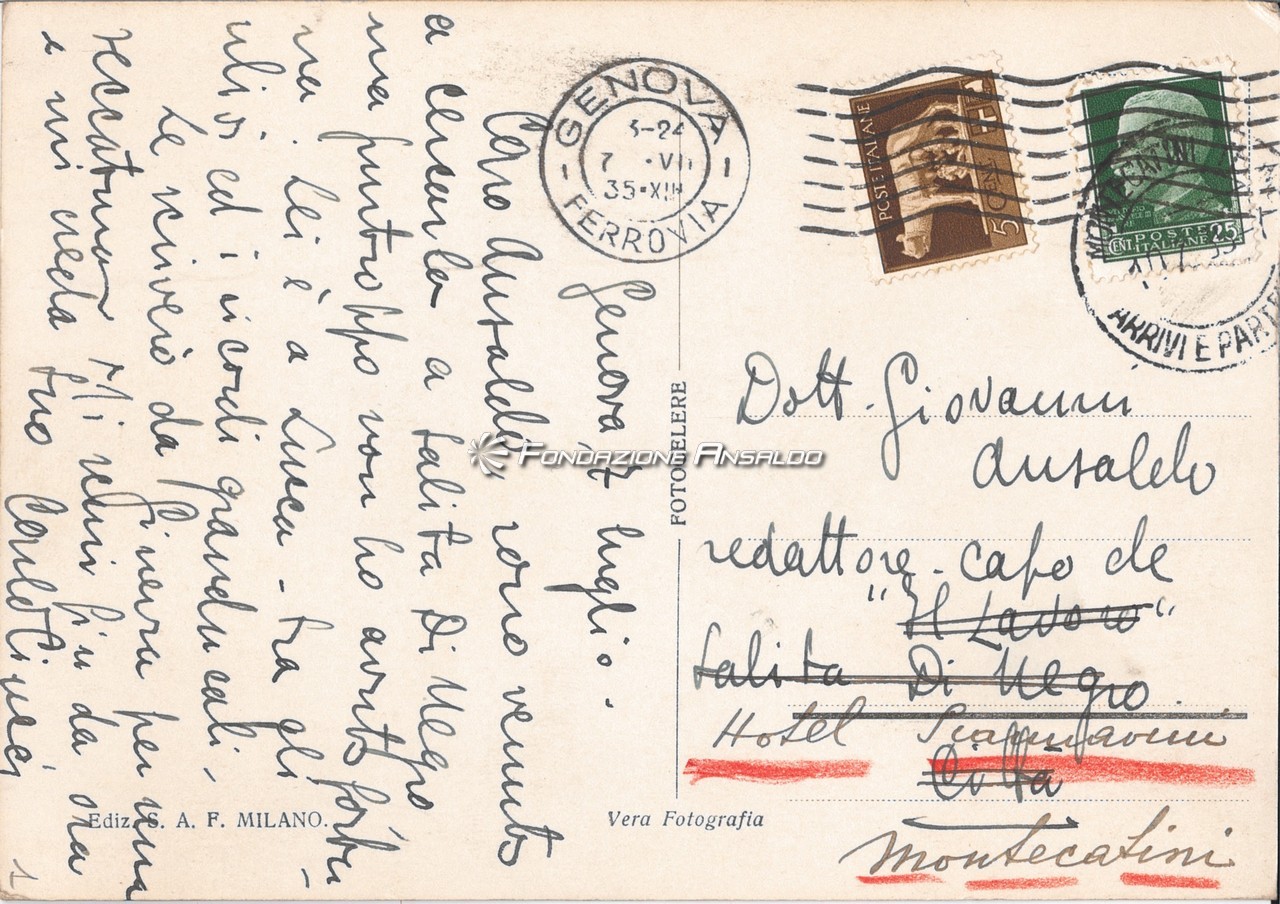 Genova 7 luglio.
Caro Ansaldo, sono venuto
a cercarla a salita Di Negro
ma purtroppo non ho avuto fortu-
na. Lei è a Lucca - tra gli
ulivi ed i ricordi granducali.
Le scriverò da Ginevra per una
seccatura. Mi scusi fin da ora
e mi creda suo
1
GENOVA
FERROVIA
3-24
7 VII
35·XIII
POSTE ITALIANE
5 CENT
POSTE
ITALIANE
CENT. 25
MONTECATINI
ARRIVI E PARTE
FOTOCELERE
FONDAZIONE ANSALDO
Dott. Giovanni
Ansaldo
redattore-capo de
"Il Lavoro"
Salita Di Negro
Hotel
Città
Montecatini
Ediz. S. A. F. MILANO.
Vera Fotografia